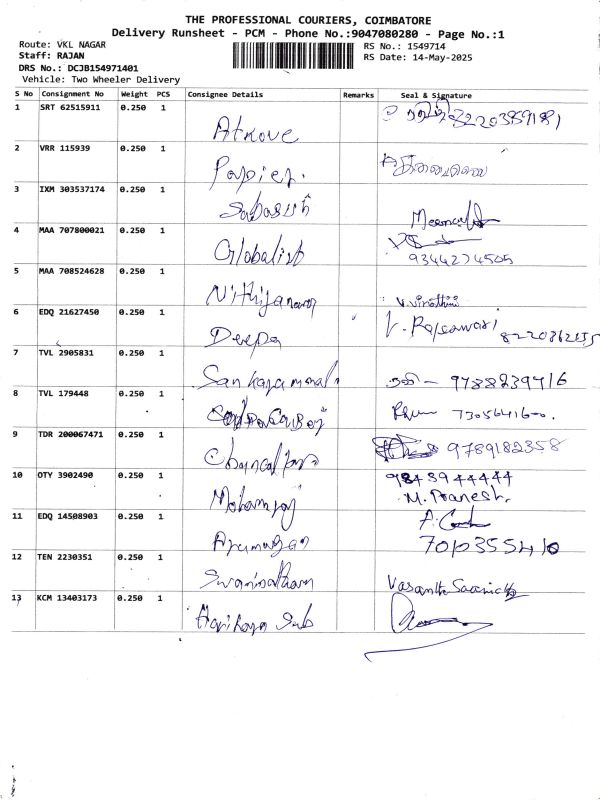 THE PROFESSIONAL COURIERS, COIMBATORE
Delivery Runsheet - PCM - Phone No.:9047080280 - Page No.:1
Route: VKL NAGAR
RS No.: 1549714
Staff: RAJAN
RS Date: 14-May-2025
DRS No.: DCJB154971401
Vehicle: Two Wheeler Delivery
S No Consignment No Weight PCS Consignee Details Remarks Seal & Signature
1 SRT 62515911 0.250 1
Atkove
2 VRR 115939 0.250 1
Papier.
3 IXM 303537174 0.250 1
4 MAA 707800021 0.250 1
Globalist 9344274505
5 MAA 708524628 0.250 1
V.Vinothini
6 EDQ 21627450 0.250 1
Deepa V. Rajeswari
7 TVL 2905831 0.250 1
9788239716
8 TVL 179448 0.250 1
9 TDR 200067471 0.250 1
9789182358
10 OTY 3902490 0.250 1
9843944444
Mohanraj M. Pranesh.
11 EDQ 14508903 0.250 1
Arumugan
12 TEN 2230351 0.250 1
13 KCM 13403173 0.250 1